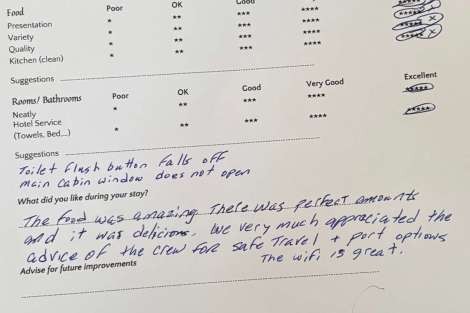 Food Poor OK Good
Presentation * ** *** **** *****
Variety * ** *** **** ***** x
Quality * ** *** **** ***** x
Kitchen (clean) * ** *** ****
Suggestions
Rooms/ Bathrooms Poor OK Good Very Good Excellent
Neatly * ** *** **** *****
Hotel Service
(Towels, Bed,...) * ** *** **** *****
Suggestions
Toilet flush button falls off
main Cabin window does not open
What did you like during your stay?
The food was amazing There was perfect amounts
and it was delicious. We very much appreciated the
advice of the crew for safe Travel + port options
The wifi is great.
Advise for future improvements